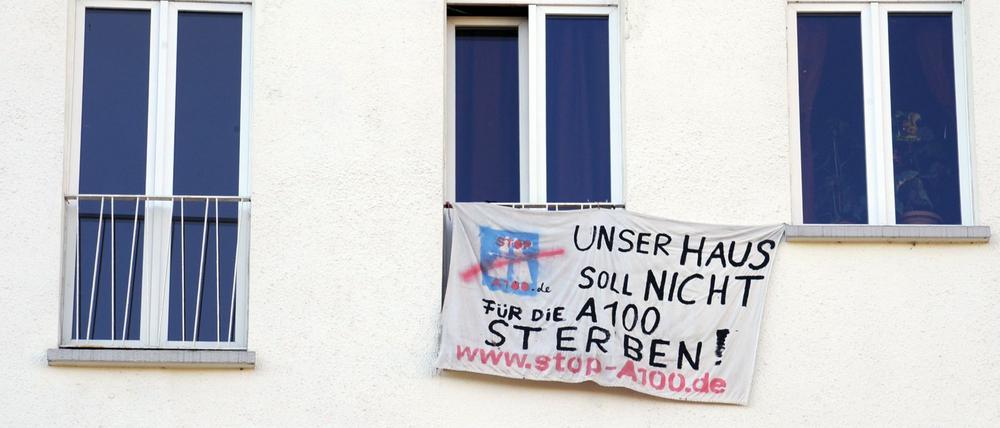 STOP
A100.de
UNSER HAUS
SOLL NICHT
FÜR DiE A100
STERBEN!
www.stop-A100.de